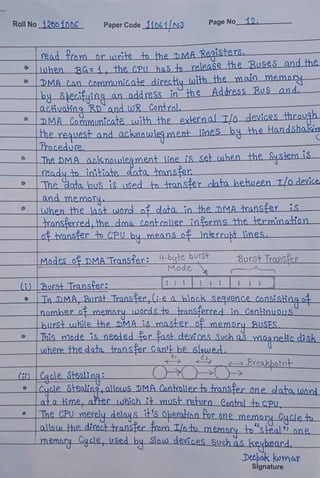 Roll No 12001006 Paper Code 11061/NJ Page No 12.
read from or write to the DMA Registers.
When BG=1, the CPU has to release the Buses and the
DMA can communicate directly with the main memory
by specifying an address in the Address Bus and.
activating RD and WR Control.
DMA Communicate with the external I/o devices through
the request and acknowlegment lines by the Handshaking
Procedure.
The DMA acknowlegment line is set when the System is
ready to initiate data transfer.
The data bus is used to transfer data between I/o device
and memory.
When the last word of data in the DMA transfer is
transferred, the dma controller informs the termination
of transfer to CPU by means of Interrupt lines.
Modes of DMA Transfer: 4-byte burst Burst Transfer
Mode
(i) Burst Transfer:
In DMA, Burst Transfer, (i.e a block sequence consisting of
number of memory words to transferred in continuous
burst while the DMA is master of memory BUSES.
This mode is needed for fast devices such as magnetic disk
where the data transfer Can't be slowed.
(ii) Cycle Stealing: Breakpoint
Cycle Stealing, allows DMA Controller to transfer one data word
at a time, after which it must return Control to CPU.
The CPU merely delays it's Operation for one memory Cycle to
allow the direct transfer from I/o to memory to "steal" one
memory Cycle, used by Slow devices such as keyboard.
Deepak kumar
Signature